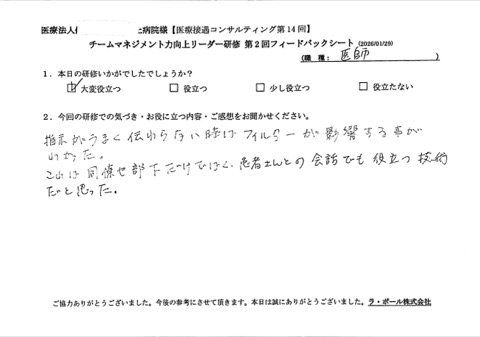 医療法人 上病院様【医療接遇コンサルティング第14回】
チームマネジメント力向上リーダー研修 第2回フィードバックシート (2026/01/29)
(職 種： 医師 )
1．本日の研修いかがでしたでしょうか？
☑ 大変役立つ □ 役立つ □ 少し役立つ □ 役立たない
2．今回の研修での気づき・お役に立つ内容・ご感想をお聞かせください。
指示がうまく伝わらない時はフィルターが影響する事が
わかった。
これは同僚や部下だけではなく、患者さんとの会話でも役立つ技術
だと思った。
ご協力ありがとうございました。今後の参考にさせて頂きます。本日は誠にありがとうございました。ラ・ポール株式会社